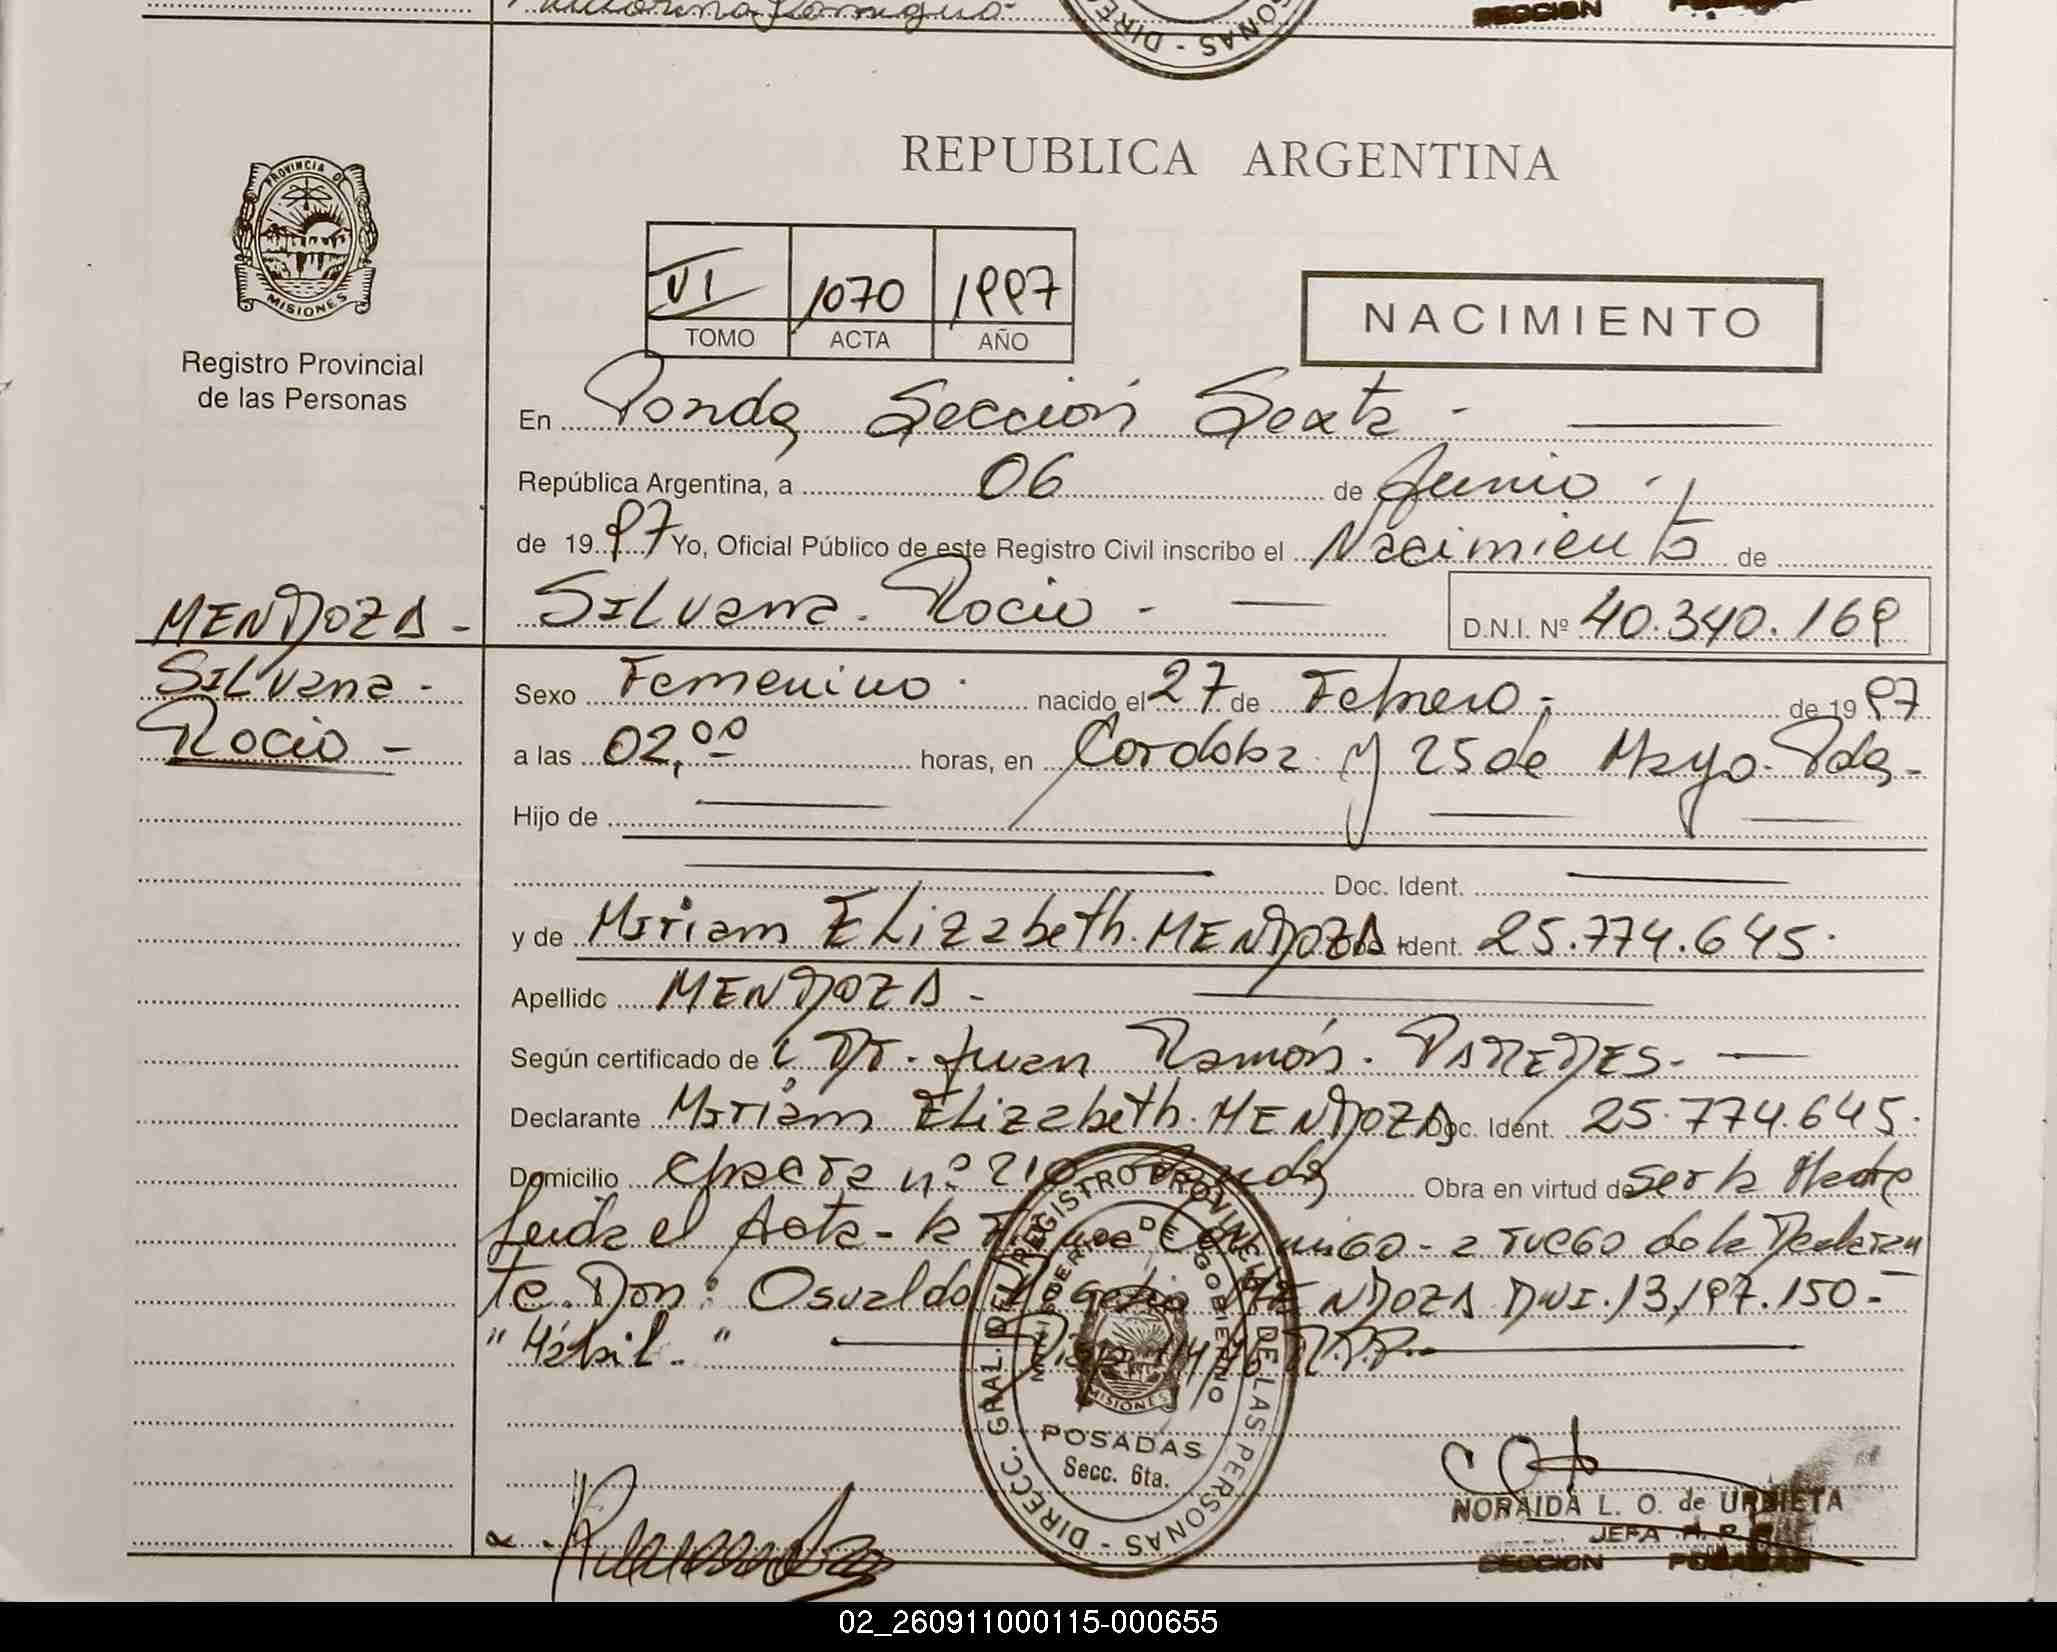 DIRECC. SONAS
SECCION
REPUBLICA ARGENTINA
PROVINCIA DE
MISIONES
Registro Provincial
de las Personas
VI 1070 1997
TOMO ACTA AÑO
NACIMIENTO
En Pdas Sección Sexta -
República Argentina, a 06 de Junio -
de 1997 Yo, Oficial Público de este Registro Civil inscribo el Nacimiento de
MENDOZA - SILvana. Rocio - D.N.I. Nº 40.340.169
SILvana - Sexo Femenino. nacido el 27 de Febrero - de 1997
Rocio - a las 02,00 horas, en Cordoba y 25 de Mayo. Pdas-
Hijo de
Doc. Ident.
y de Miriam ELizabeth. MENDOZA Doc. Ident. 25.774.645.
Apellido MENDOZA -
Según certificado de Dr. Juan Ramón. PAREDES. -
Declarante Miriam ELizabeth. MENDOZA Doc. Ident. 25.774.645.
Domicilio Chacra nº 210 Obra en virtud de ser la Madre
Leida el Acta - la Firma Conmigo - a ruego de la Declaran
te. Don: Osvaldo Rogelio MENDOZA D.N.I. 13.197.150 -
"Hábil." R.P.P.
DIRECC. GRAL. DEL REGISTRO PROVINCIAL DE LAS PERSONAS
MINISTERIO DE GOBIERNO
MISIONES
POSADAS
Secc. 6ta.
NORAIDA L. O. de URBIETA
JEFA R. P. P.
SECCION POSADAS
02_260911000115-000655